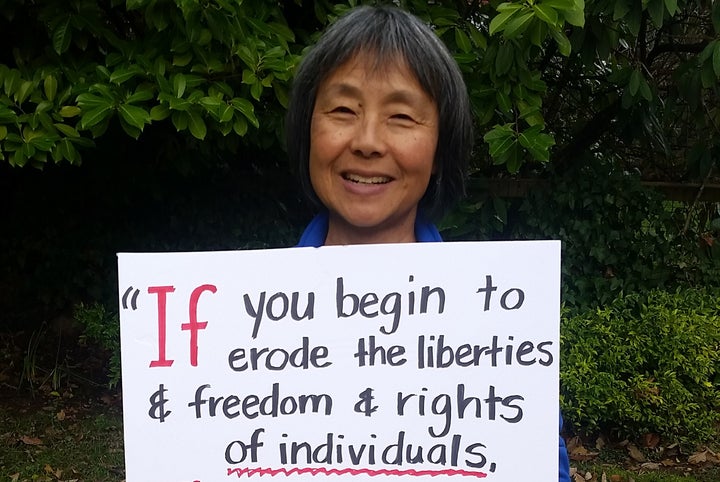 "If you begin to
erode the liberties
& freedom & rights
of individuals,